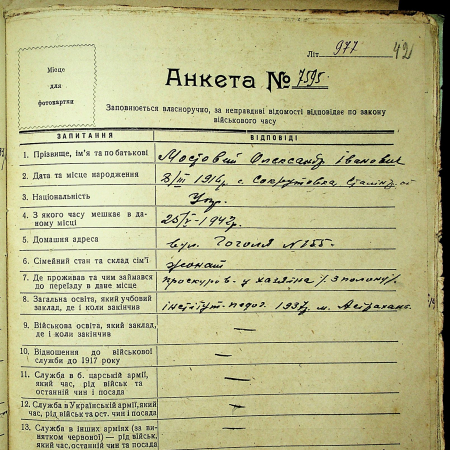 Літ. 977 42
Місце
для
фотокартки
Анкета № 7595
Заповнюється власноручно, за неправдиві відомості відповідає по закону
військового часу
ЗАПИТАННЯ ВІДПОВІДІ
1. Прізвище, ім'я та по батькові Мостовий Олександр Іванович
2. Дата та місце народження 8/III 1916р. с.
3. Національність Укр.
4. З якого часу мешкає в да-
ному місці 25/V-1942р.
5. Домашня адреса вул. Гоголя № 155.
6. Сімейний стан та склад сім'ї жонат
7. Де проживав та чим займався
до переїзду в дане місце проскуров. у хазяїна /з полону/.
8. Загальна освіта, який учбовий
заклад, де і коли закінчив інститут педог. 1937р. м.
9. Військова освіта, який заклад,
де і коли закінчив —
10. Відношення до військової
служби до 1917 року —
11. Служба в б. царській армії,
який час, рід військ та
останній чин і посада —
12. Служба в Українській армії, який
час, рід військ та ост. чин і посада —
13. Служба в інших арміях (за ви-
нятком червоної) — рід військ,
який час, останній чин та посада —